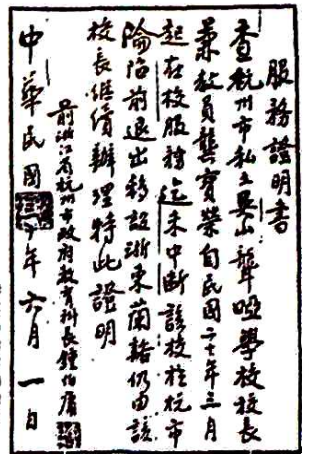 服務證明書
查杭州市私立吳山聾啞學校校長
兼教員龔寶榮自民國二十年三月
起在校服務迄未中斷該校於杭市
淪陷前退出移設浙東蘭谿仍由該
校長繼續辦理特此證明
前浙江省杭州市政府教育科長鍾伯庸
中華民國 年六月一日